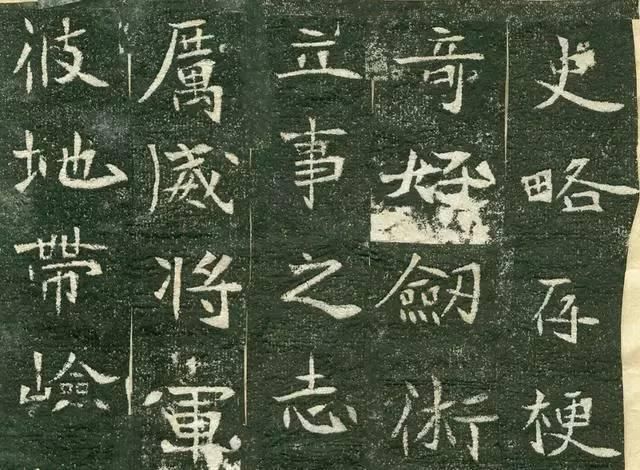 史略存梗
奇劒術
立事之志
厲威将軍
彼地帶嶮